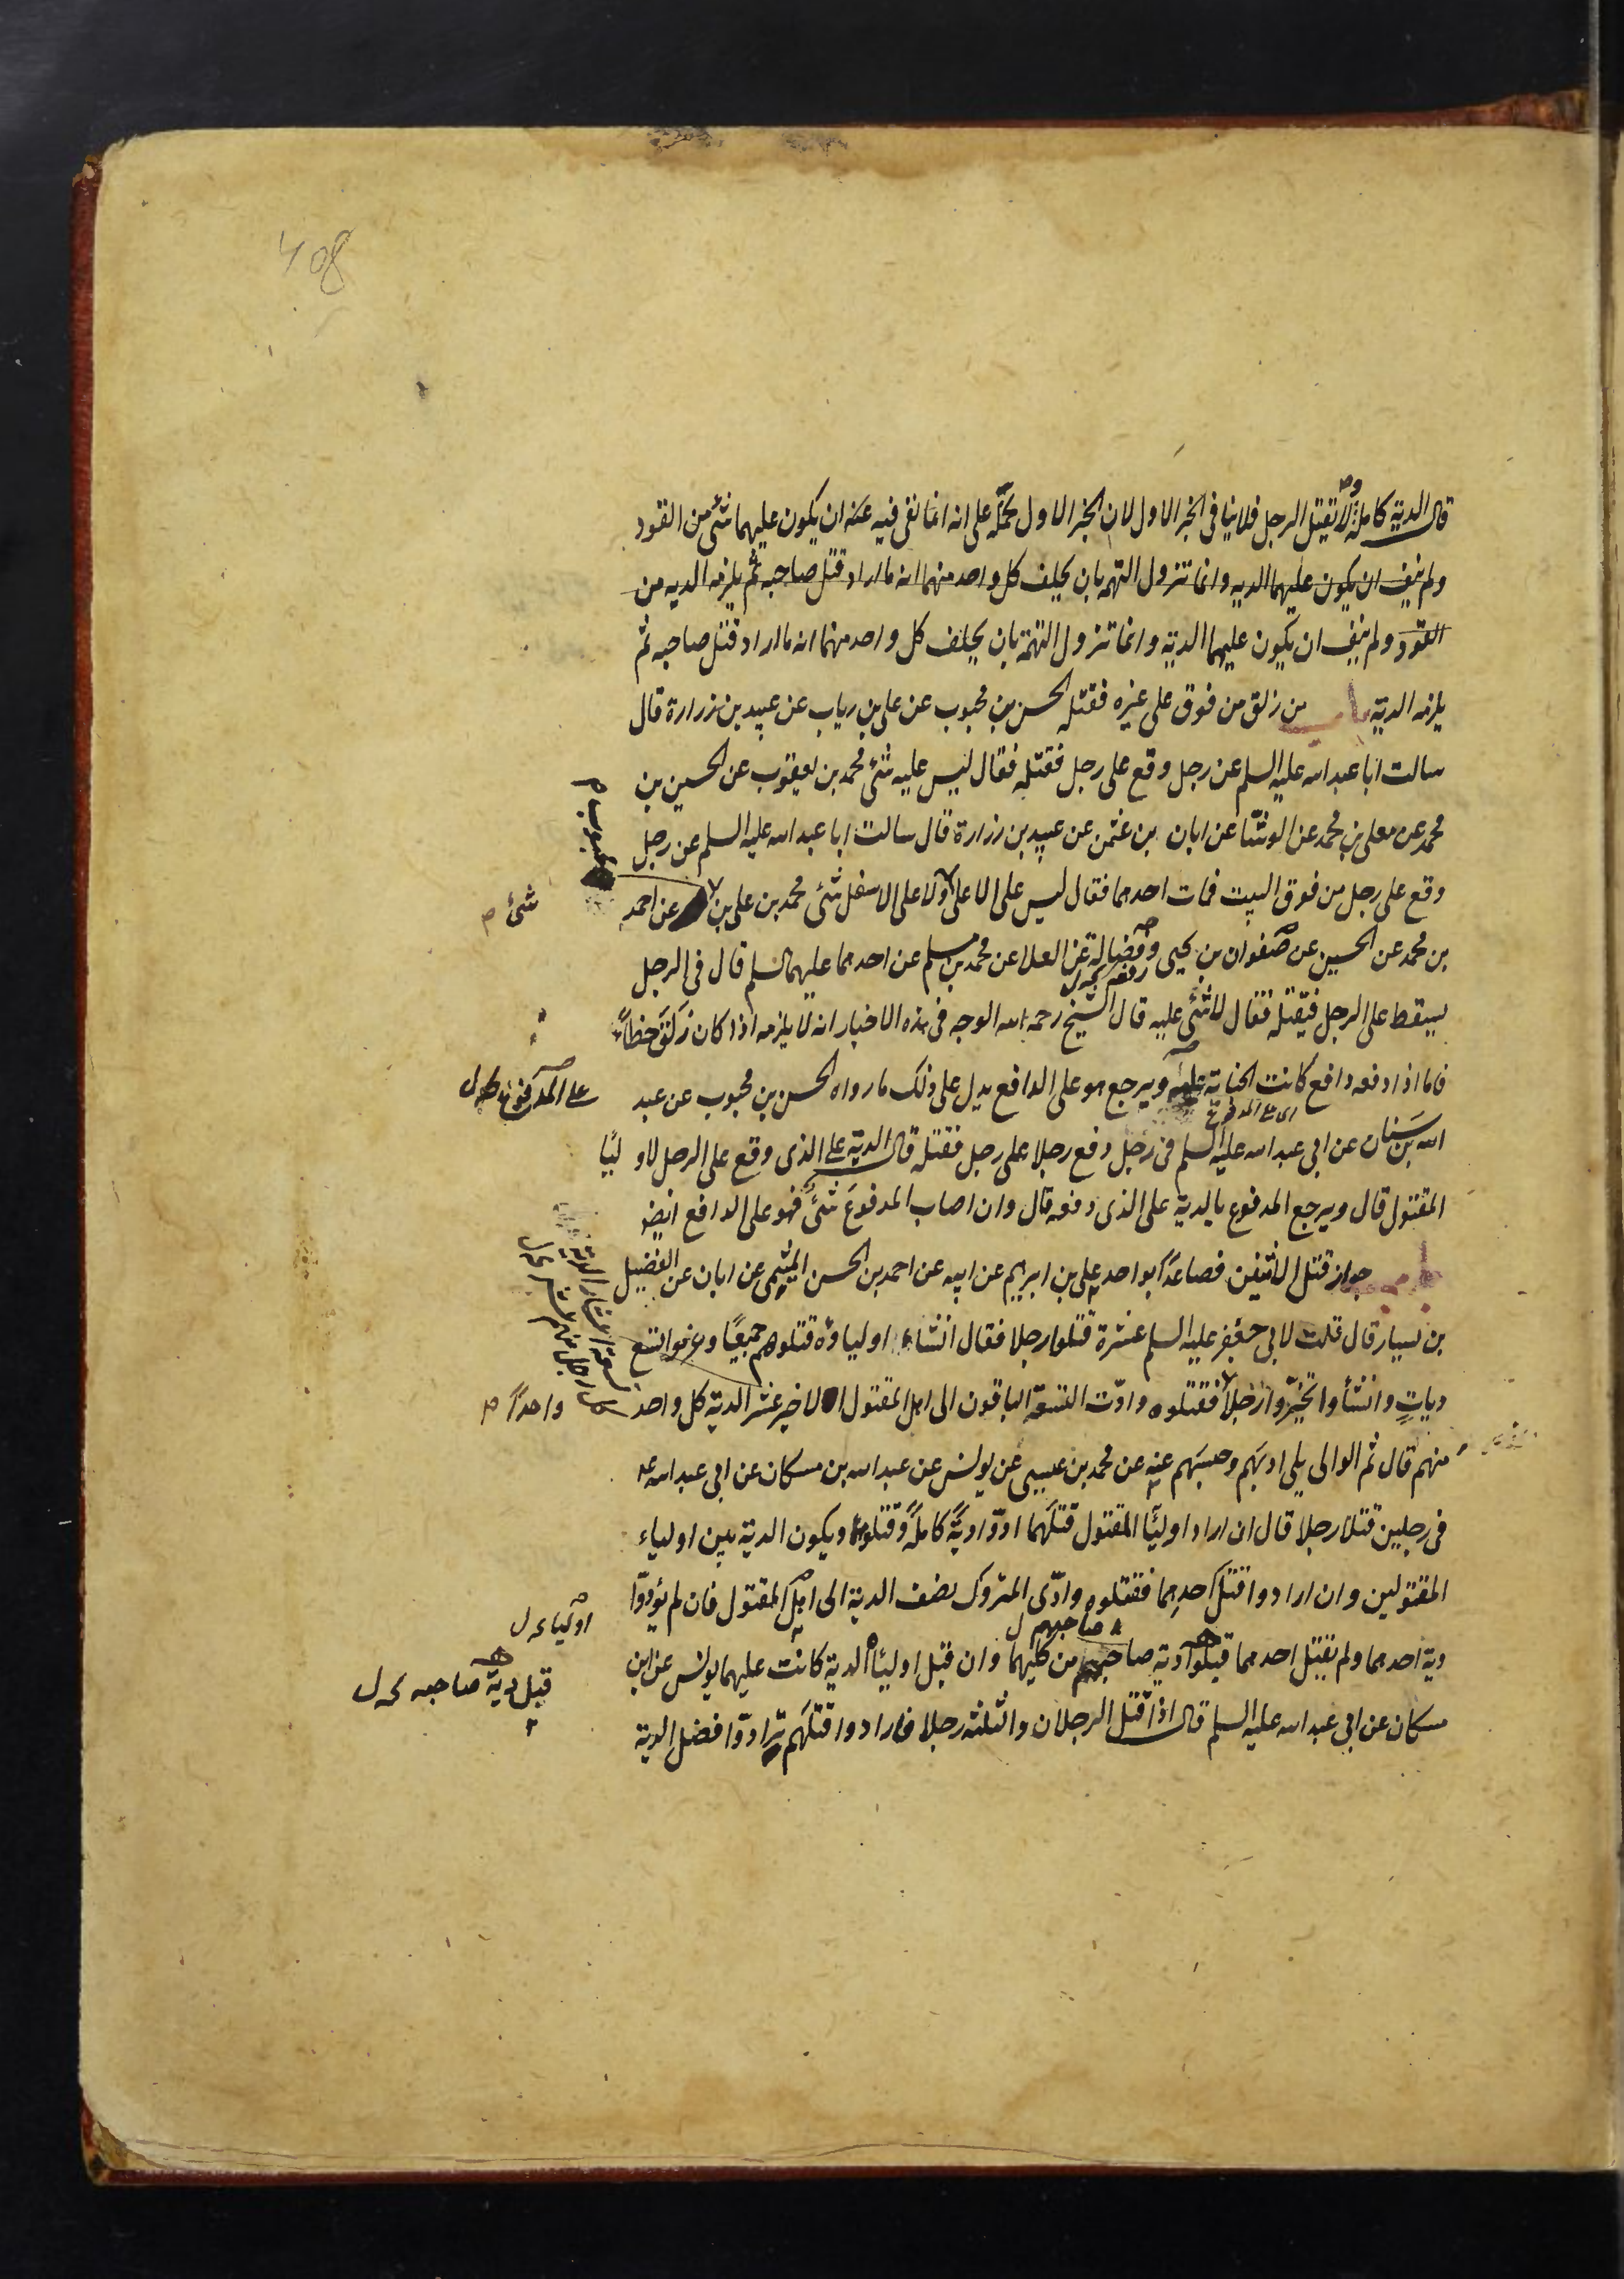 408
قال الدية كاملة ولا تقتل الرجل فلا ينافى الخبر الاول لان الخبر الاول نحمله على انه انما نفى فيه عنه ان يكون عليهما شئ من القود
ولم ينف ان يكون عليهما الديه وانما تزول التهمه بان يحلف كل واحد منهما انه ما اراد قتل صاحبه ثم يلزمه الديه من
القود ولم ينف ان يكون عليهما الدية وانما تزول التهمة بان يحلف كل واحد منهما انه ما اراد قتل صاحبه ثم
يلزمه الدية باب من زلق من فوق على غيره فقتله الحسن بن محبوب عن على بن رياب عن عبيد بن زرارة قال
سالت ابا عبد الله عليه السلم عن رجل وقع على رجل فقتله فقال ليس عليه شئ محمد بن يعقوب عن الحسين بن
محمد عن معلى بن محمد عن الوشّا عن ابان بن عثمن عن عبيد بن زرارة قال سالت ابا عبد الله عليه السلم عن رجل
محبوب م
وقع على رجل من فوق البيت فمات احدهما فقال ليس على الاعلى ولا على الاسفل شئ محمد بن على بن عن احمد
شئ م
بن محمد عن الحسين عن صفوان بن يحيى وفضالة عن العلا عن محمد بن مسلم عن احدهما عليهما السلم قال فى الرجل
يسقط على الرجل فيقتله فقال لا شئ عليه قال الشيخ رحمه الله الوجه فى هذه الاخبار انه لا يلزمه اذا كان زلق خطاءً
فاما اذا دفعه دافع كانت الجناية عليه ويرجع هو على الدافع يدل على ذلك ما رواه الحسن بن محبوب عن عبد
على المدفوع
اى على المدفوع
الله بن سنان عن ابى عبد الله عليه السلم فى رجل دفع رجلا على رجل فقتله قال الدية على الذى وقع على الرجل لاوليا
المقتول قال ويرجع المدفوع بالدية على الذى دفعه قال وان اصاب المدفوع شئ فهو على الدافع ايضا
باب جواز قتل الاثنين فصاعدا بواحد على بن ابرهيم عن ابيه عن احمد بن الحسن الميثمى عن ابان عن الفضيل
بن يسار قال قلت لابى جعفر عليه السلم عشرة قتلوا رجلا فقال ان شاء اولياؤه قتلوهم جميعًا وغرموا تسع
دياتٍ وان شأوا تخيّروا رجلا فقتلوه وادّت التسعة الباقون الى اهل المقتول الاخير عشر الدية كل واحد
واحدًا م
منهم قال ثم الوالى يلى ادبهم وحبسهم عنه عن محمد بن عيسى عن يونس عن عبد الله بن مسكان عن ابى عبد الله ع
فى رجلين قتلا رجلا قال ان اراد اوليا المقتول قتلهما ادّوا ديةً كاملةً وقتلوهما ويكون الدية بين اولياء
المقتولين وان ارادوا قتل احدهما فقتلوه وادّى المتروك نصف الدية الى اهل المقتول فان لم يؤدّوا
اولياء
دية احدهما ولم يقتل احدهما قبلوا دية صاحبهم من كليهما وان قبل اولياؤه الدية كانت عليهما يونس عن ابن
صاحبهم
قبل دية صاحبه
مسكان عن ابى عبد الله عليه السلم قال اذا قتل الرجلان والثلثه رجلا فارادوا قتلهم ترادّوا فضل الدية